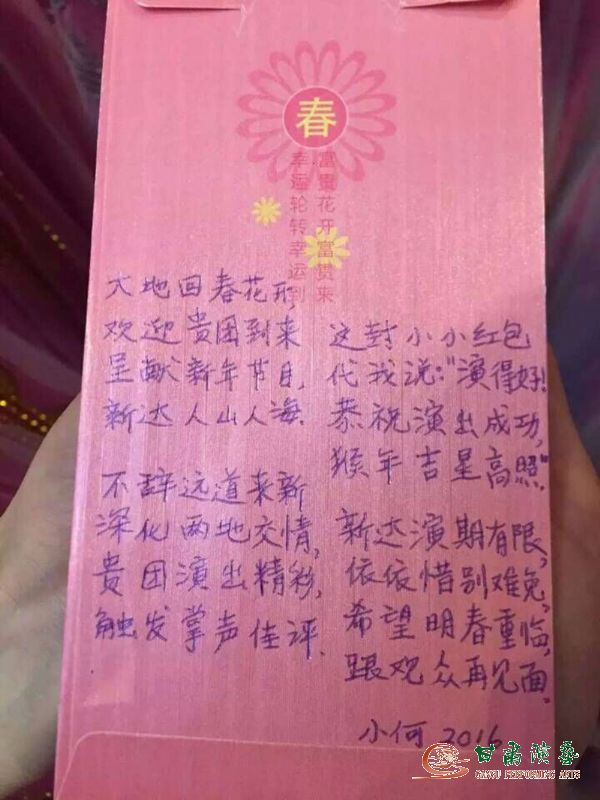 春
富贵花开富贵来
幸运轮转幸运到
大地回春花开,
欢迎贵团到来
呈献新年节目,
新达人山人海.
不辞远道来新
深化两地交情,
贵团演出精彩,
触发掌声佳评.
这封小小红包
代我说:"演得好!
恭祝演出成功,
猴年吉星高照."
新达演期有限,
依依惜别难免,
希望明春重临,
跟观众再见面.
小何 2016
甘肃演艺
GANSU PERFORMING ARTS